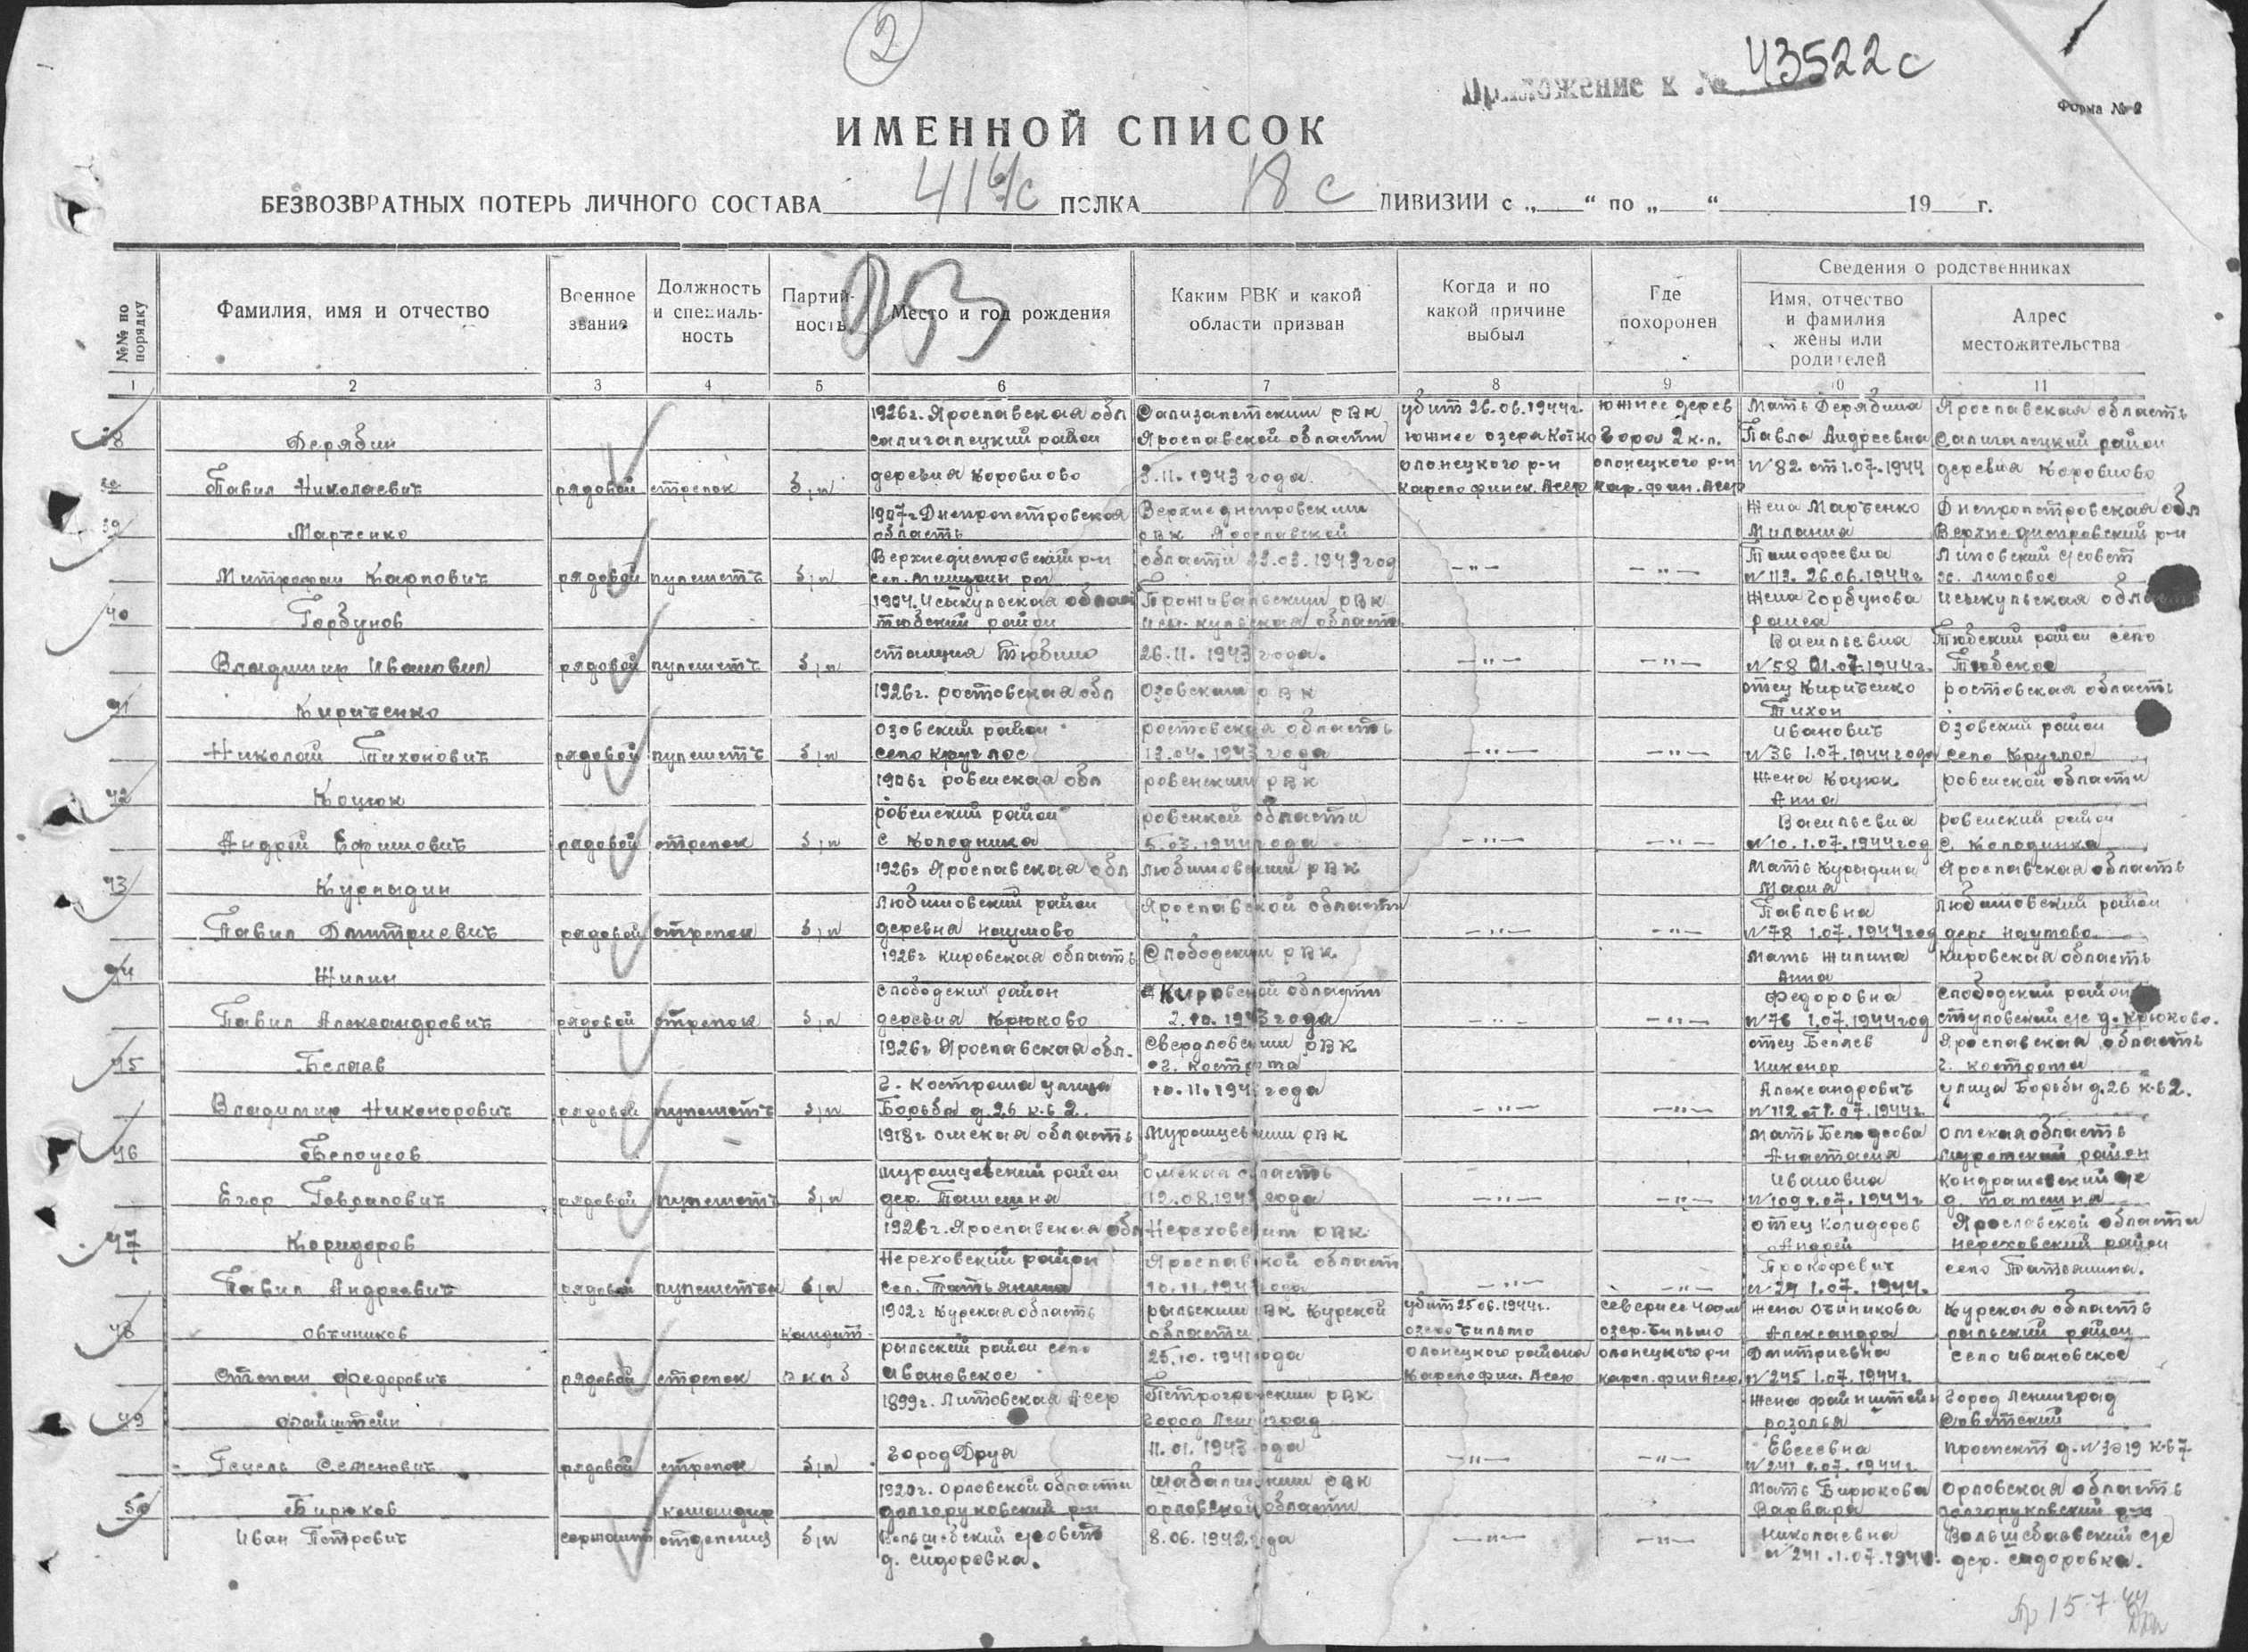 2
Приложение к № 43522с
Форма № 2
ИМЕННОЙ СПИСОК
БЕЗВОЗВРАТНЫХ ПОТЕРЬ ЛИЧНОГО СОСТАВА 414 с ПОЛКА 18 с ДИВИЗИИ с „ “ по „ “ 19 г.
№№ по порядку
Фамилия, имя и отчество
Военное звание
Должность и специальность
Партийность
Место и год рождения
Каким РВК и какой области призван
Когда и по какой причине выбыл
Где похоронен
Сведения о родственниках
Имя, отчество и фамилия жены или родителей
Адрес местожительства
1 2 3 4 5 6 7 8 9 10 11
38 Дерябин
Павил Николаевич рядовой стрелок б/п
1926г. Ярославская обл
салигалецкий район
деревия Коровново
Ярославской области
3.11.1943 года
убит 26.06.1944г.
южнее озера
олонецкого р-н
Карелофинск. Асср
южнее дерев
Гора 2 к.п.
олонецкого р-н
Кар. фин. Асср
Мать Дерябина
Павла Андреевна
№ 82 от 1.07.1944
Ярославская область
Салигалецкий район
деревня Коровново
39 Марченко
Митрофан Карпович рядовой пулеметч б/п
1907г Днепропетровская
область
Верхнеднепровский р-н
Верхнеднепровским
рвк Ярославской
области 23.03.1943 год
—"— —"—
Жена Марченко
Милания
Тимофеевна
№ 113. 26.06.1944г
Днепропетровская обл
Верхнеднепровский р-н
Липовский с/совет
с. Липовое
40 Горбунов
Владимир Иванович рядовой пулеметч б/п
1904. Исыкульская облас
тюбский район
станция Тюбино
Прживальским рвк
Исы-кульская область
26.11.1943 года.
—"— —"—
Жена Горбунова
раиса
Васильевна
№ 58 01.07.1944г.
Исыкульская
Тюбский район село
Тюбское
41 Кириченко
Николай Тихонович рядовой пулеметч б/п
1926г. ростовская обл
Озовский район
село круглое
Озовским рвк
ростовская область
13.04.1943 года
—"— —"—
отец Кириченко
Тихон
Иванович
№ 36 1.07.1944 года
ростовская область
Озовский район
село Круглое
42 Коцюк
Андрей Ефимович рядовой стрелок б/п
1906г ровенская обл
ровенский район
с Колодника
ровенским рвк
ровенкой области
5.03.1944 года
—"— —"—
Жена Коцюк
Анна
Васильевна
№ 10. 1.07.1944 год
ровенской области
ровенский район
с. Колодинка
43 Курлыдин
Павил Дмитриевич рядовой стрелок б/п
1926г Ярославская обл
Любимовский район
деревна наумово
любимовским рвк
Ярославской области
—"— —"—
Мать Курыдина
Мария
Павловна
№ 78 1.07.1944 год
Ярославская область
Любимовский район
дере наумово
44 Жилин
Павил Александрович рядовой стрелок б/п
1926г Кировская область
слободский район
деревня Крюково
Слободским рвк
Кировской области
2.10.1943 года
—"— —"—
Мать Жилина
Анна
Федоровна
№ 76 1.07.1944 год
Кировская область
слободский район
ступовский с/с д. Крюково.
45 Беляев
Владимир Никонорович рядовой пулеметч б/п
1926г Ярославская обл.
г. Кострома улица
Борьба д.26 к-62.
Свердловским рвк
г. Кострома
10.11.1943 года
—"— —"—
отец Беляев
Никонор
Александрович
№ 112 от 1.07.1944г.
Ярославская область
г. Кострома
улица Борьбы д.26 к-62.
46 Белоусов
Егор Гаврилович рядовой пулеметч б/п
1918г омская область
муромцевский район
дер.
Муромцевким рвк
омская область
—"— —"—
Мать
Анастасия
Ивановна
№ 109 1.07.1944г
омская область
район
Кондрашевский с/с
47 Коридоров
Павил Андреевич рядовой пулеметчк б/п
1926г. Ярославская обл
Нереховский район
сел. Татьянина
Нереховским рвк
Ярославской област
—"— —"—
отец Колидоров
Андрей
Прокофевич
№ 29 1.07.1944.
Ярославской области
нереховский район
село Татьянина.
48 Овчиников
Степан Федорович рядовой стрелок кандит. вкпб
1902г Курская область
рыльский район село
Ивановское
рыльским рвк Курской
области
25.10.1941 года
убит 25 06.1944г.
озеро Чильмо
олонецкого района
Карелофин. Асср
севернее
озер. Чильмо
олонецкого р-н
карел. фин Асср.
Жена Овчиникова
Александра
Дмитриевна
№ 245 1.07.1944г.
Курская область
рыльский район
село Ивановское
49 Файштейн
Гецель Семенович рядовой стрелок б/п
1899г. Литовская Асср
город Друя
Петроградским рвк
город Ленинград
11.01.1943 года
—"— —"—
Жена Файнштейн
розалья
Евсеевна
№ 241 1.07.1944г.
город Ленинград
Советский
проспект
50 Бирюков
Иван Петрович сержант командир отделения б/п
1920г. Орловской области
долгоруковский р-н
д. Сидоровка.
орловской области
8.06.1942 года
—"— —"—
Мать Бирюкова
Варвара
Николаевна
№ 241.1.07.1944.
Орловская область
долгоруковский р-н
дер. Сидоровка.
15.7.44